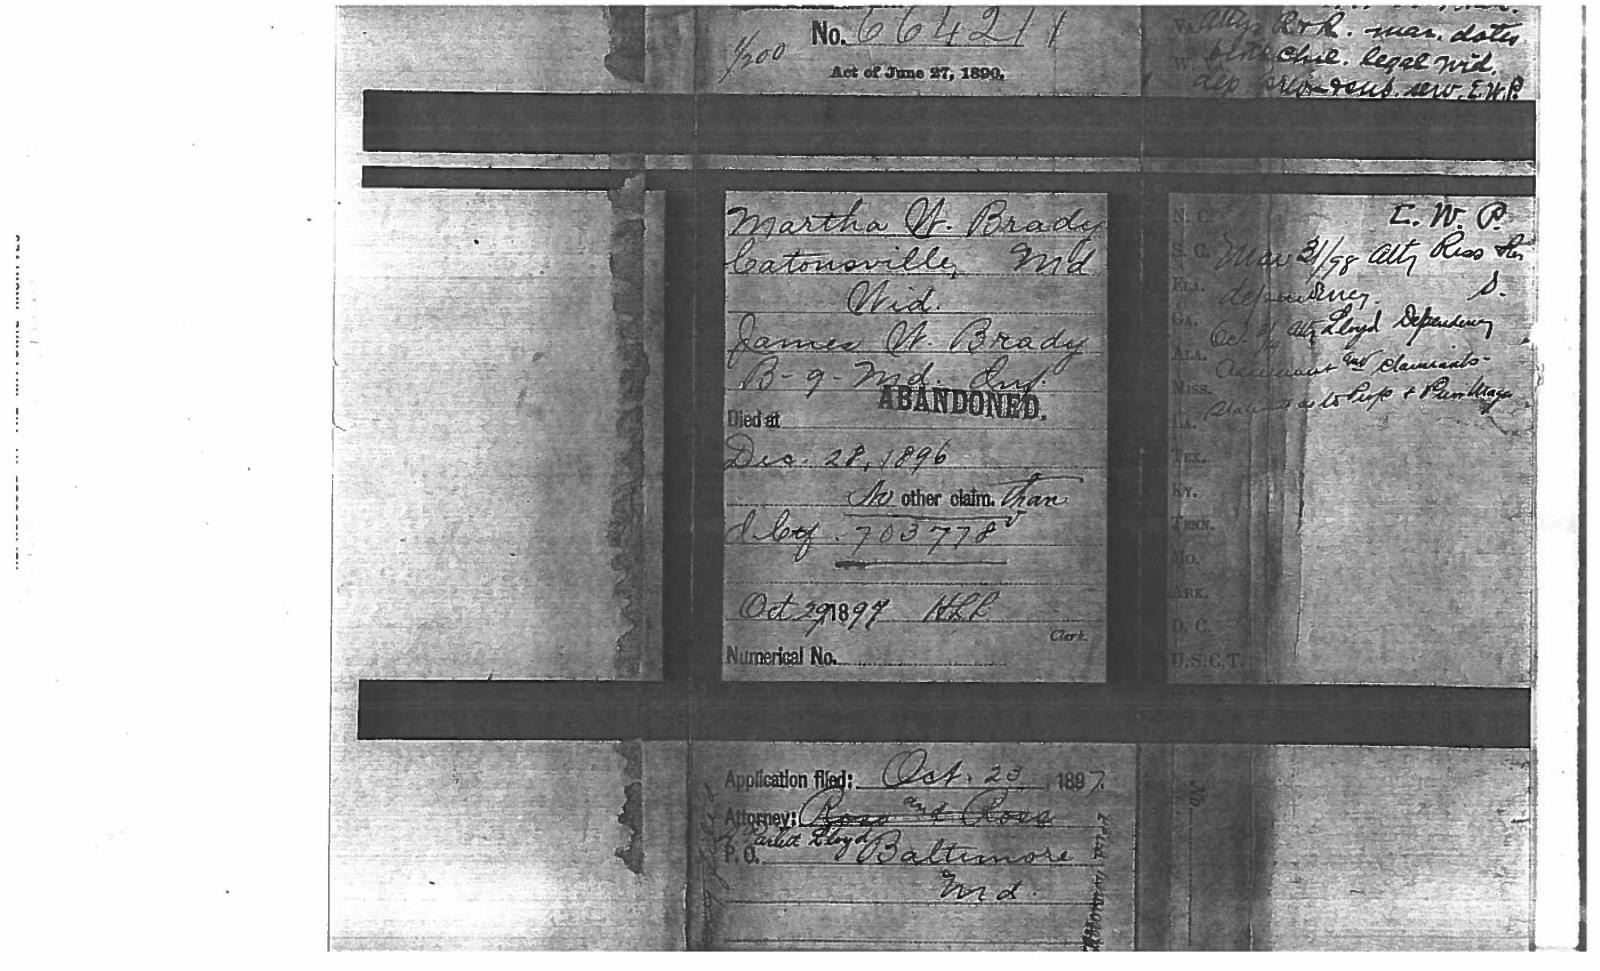 No. 664211
1/200
Act of June 27, 1890.
Atty R & R. mar. dates
chil. legal wid.
dep & sub. serv. E.W.P.
Martha W. Brady
Catonsville, Md
Wid.
James W. Brady
B-9-Md. Inf.
ABANDONED.
Died at
Dec. 28, 1896
No other claim. than
I Ctf. 703778
Oct 29 1897 HLR
Clerk.
Numerical No.
Application filed: Oct. 23, 1897.
Attorney: Ross and Ross
Lloyd
P. O. Baltimore
Md.
N. C.
S. C.
FLA.
GA.
ALA.
MISS.
LA.
TEX.
KY.
TENN.
MO.
ARK.
D. C.
U.S.C.T.
E. W. P.
Mar 31/98 Atty Ross
dependency. S.
Oct. Atty Lloyd Dependency
claimants
as to Prop &
No.